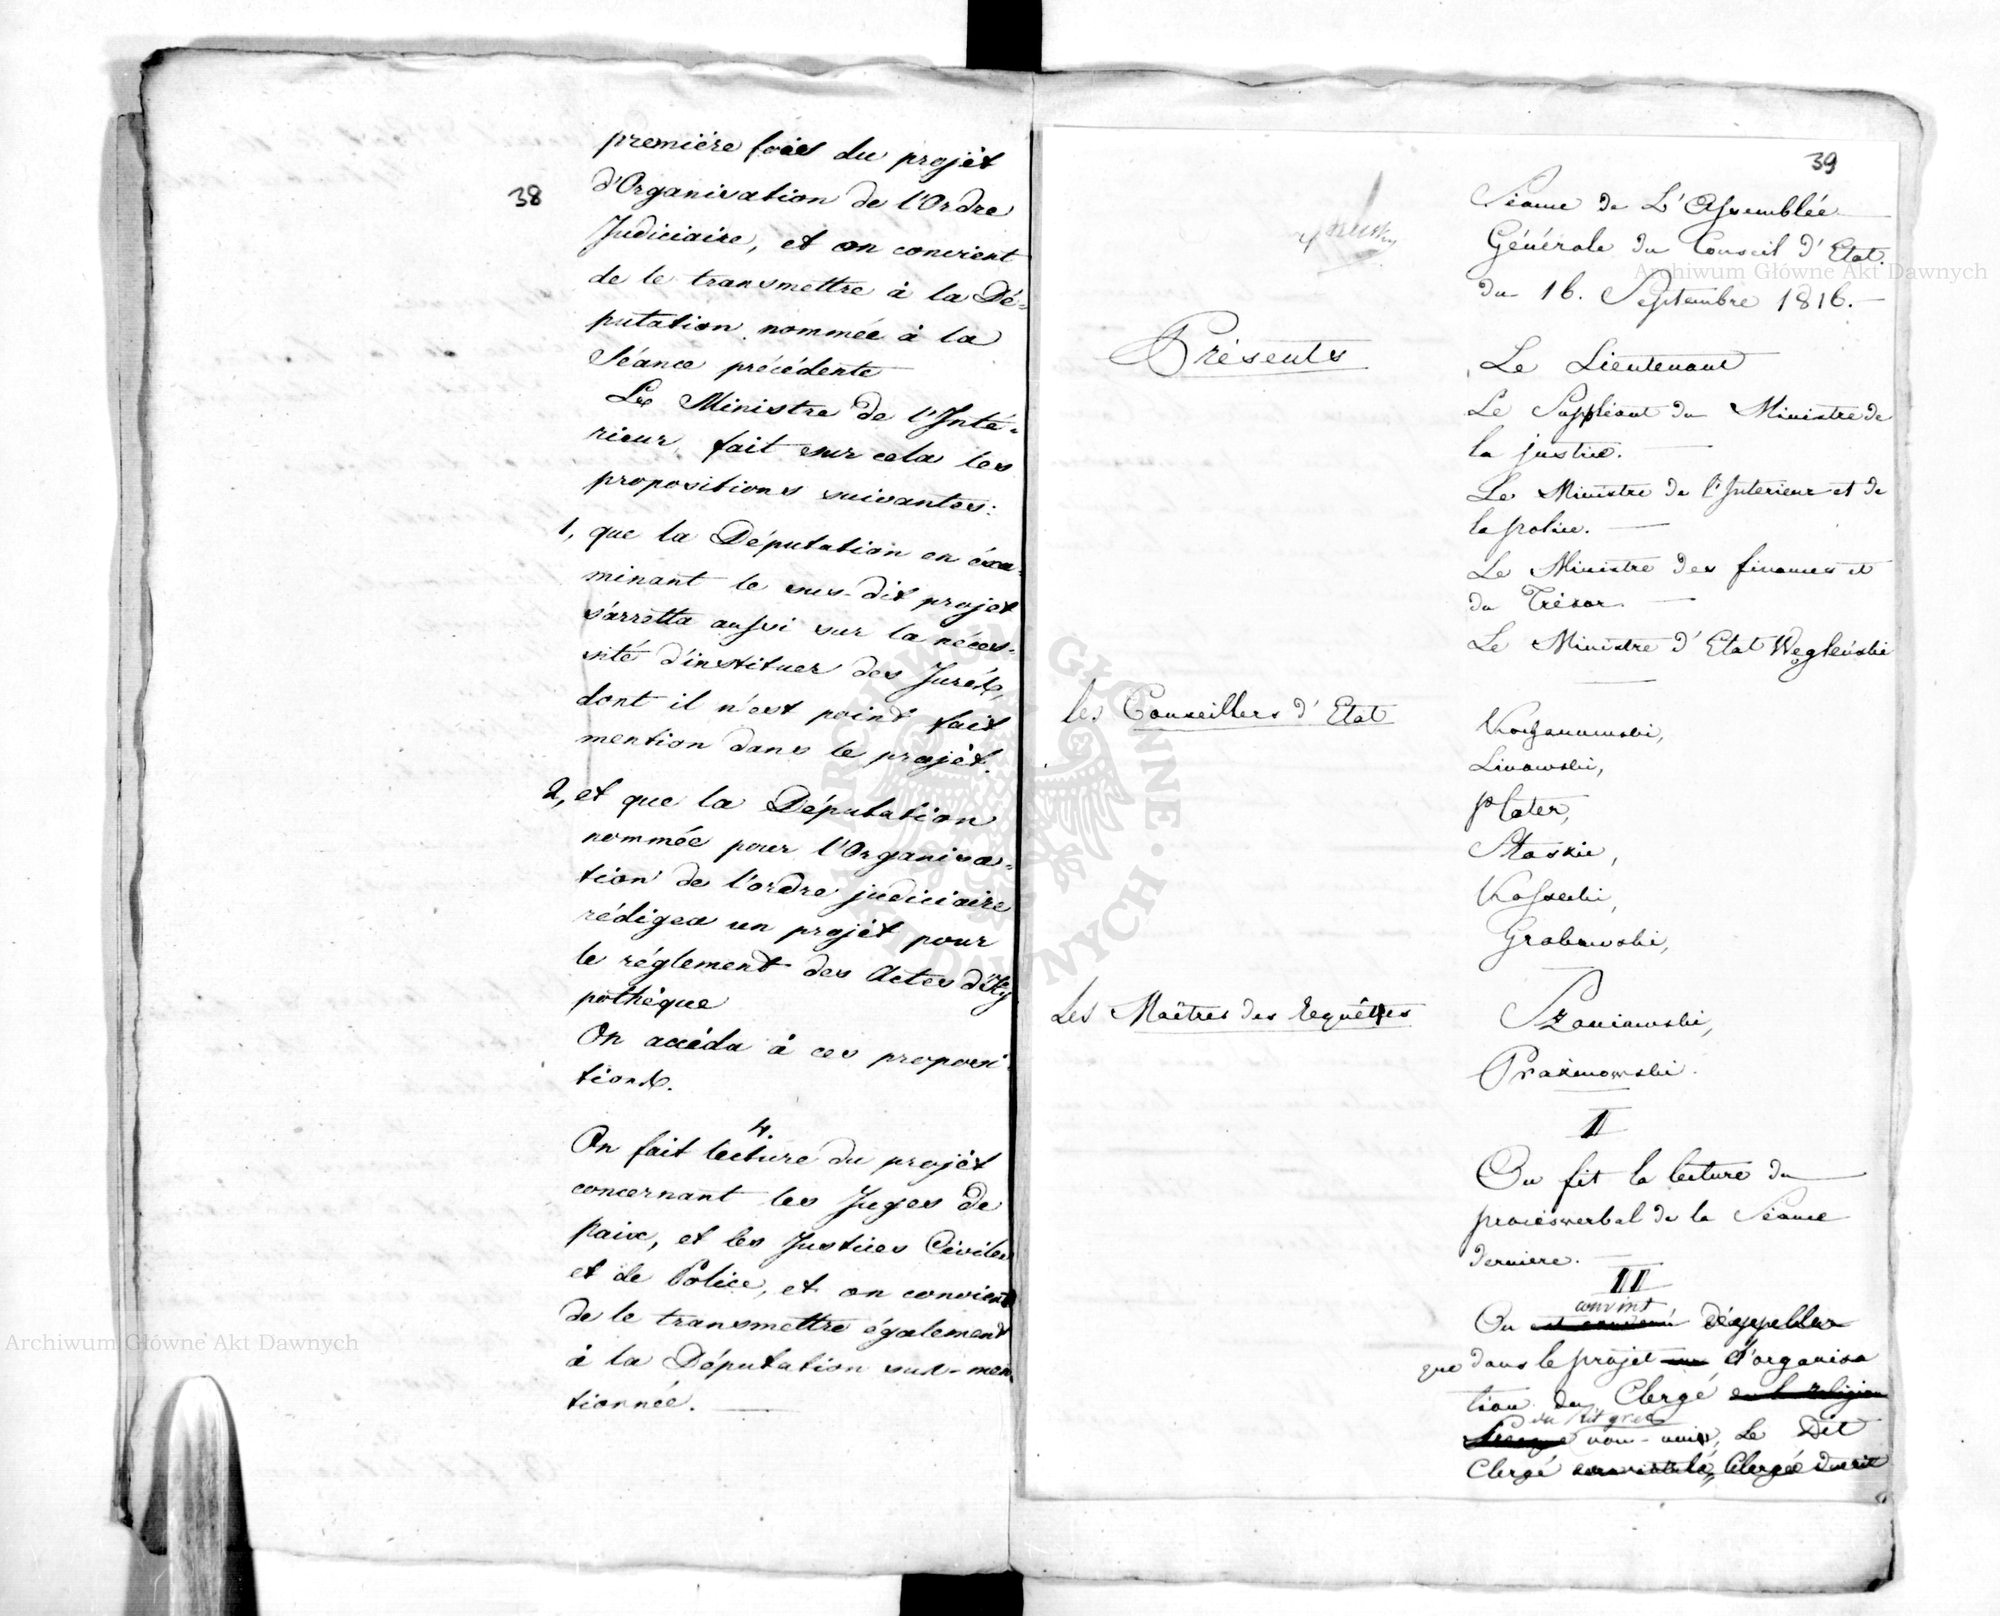 38
première fois du projèt
d'Organisation de l'Ordre
Judiciaire, et on convient
de le transmettre à la Dé-
putation nommée à la
Séance précédente
Le Ministre de l'Inté-
rieur, fait sur cela les
propositions suivantes:
1, que la Députation en éxa-
minant le sus-dit projet
s'arretta aussi sur la néces-
sité d'instituer des Jurés,
dont il n'est point fait
mention dans le projèt.
2, et que la Députation
nommée pour l'Organisa-
tion de l'ordre judiciaire
rédigea un projèt pour
le réglement des Actes d'Hy
pothèque
On accéda à ces proposi-
tions.
4.
On fait lecture du projèt
concernant les Juges de
paix, et les Justices Civiles
et de Police, et on convient
de le transmettre également
à la Députation sus-men
tionnée.
39
Séance de L'Assemblée
Générale du Conseil d'Etat.
du 16. Septembre 1816.
Présents
Le Lieutenant
Le Suppléant du Ministre de
la justice.
Le Ministre de l'Interieur et de
la police.
Le Ministre des finances et
du Trésor.
Le Ministre d'Etat Węgleński
les Conseillers d'Etat
Kochanowski,
Linowski,
Plater,
Staszic,
Kossecki,
Grabowski,
Les Maîtres des Requêtes
Szaniawski,
Prażmowski.
I
On fit la lecture du
procèsverbal de la Séance
derniere.
II
convint
On d'appeller
que dans le projet d'organisa
tion du Clergé en la religion
du rit grec
non-unis, Le Dit
Clergé Clergé du rit
Archiwum Główne Akt Dawnych
Archiwum Główne Akt Dawnych
ARCHIWUM GŁÓWNE AKT DAWNYCH